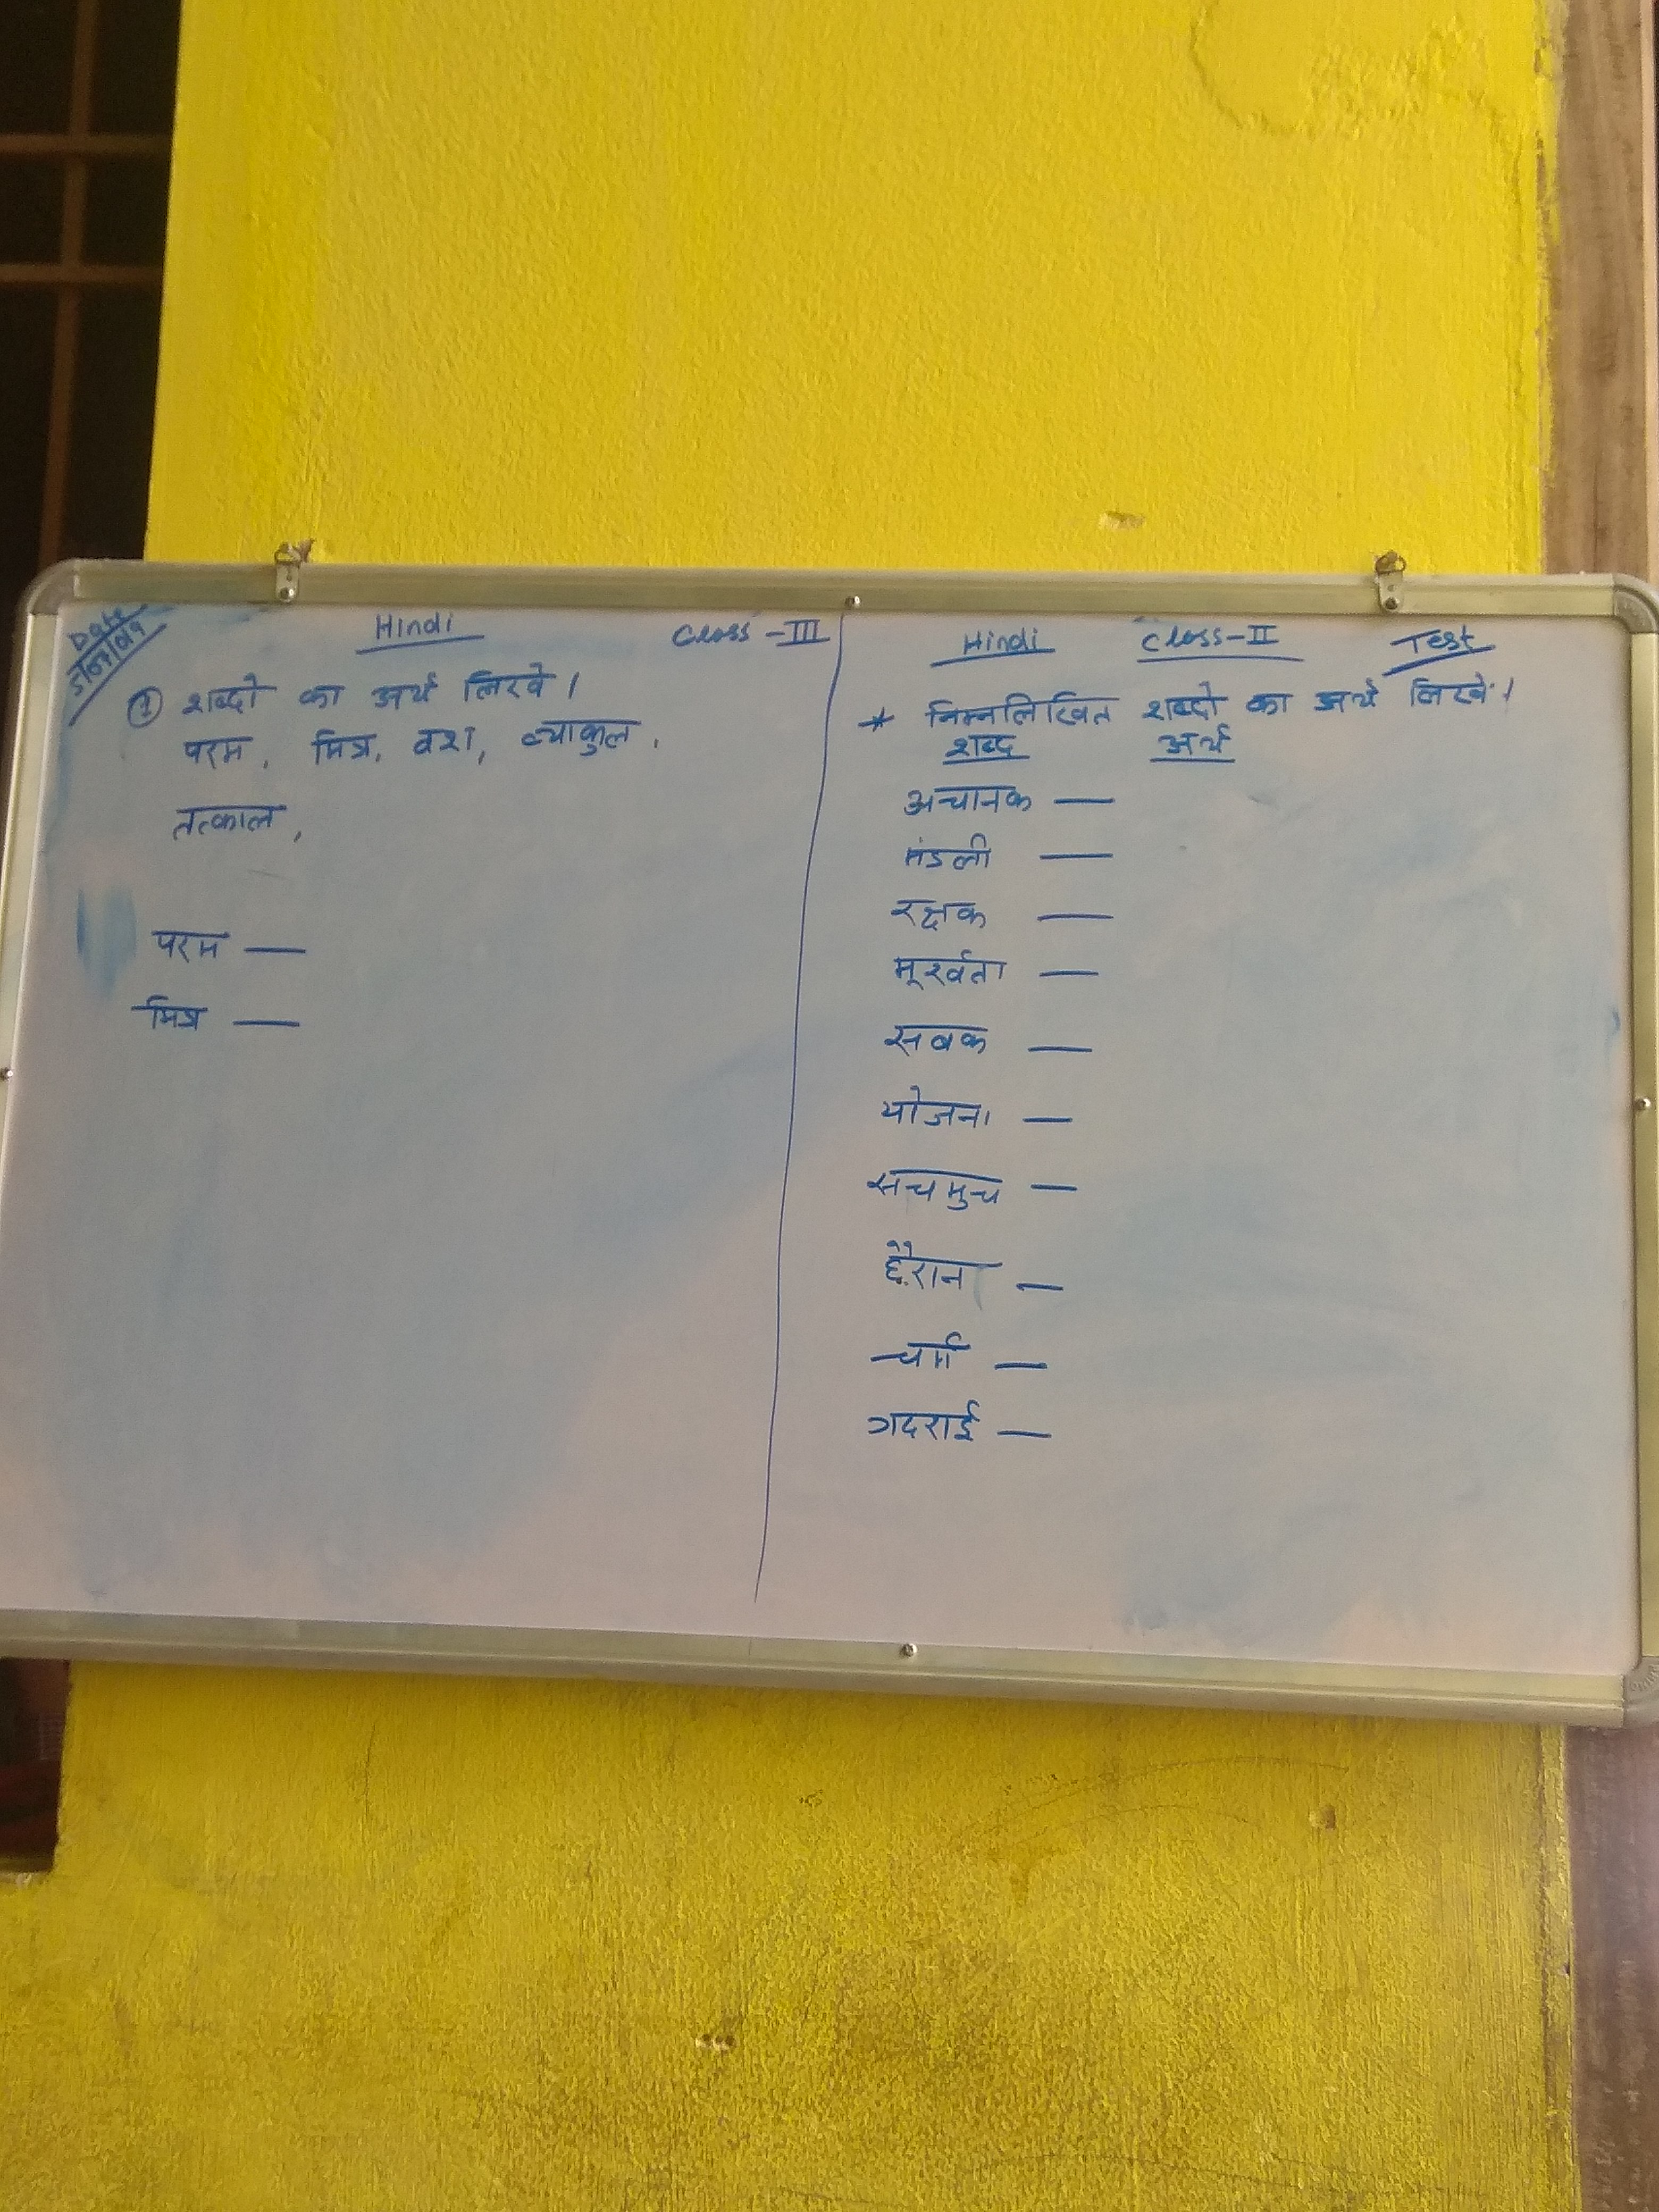 Date
5/07/019
Hindi Class-III
① शब्दो का अर्थ लिखे।
परम, मित्र, वश, व्याकुल,
तत्काल,
परम —
मित्र —
Hindi Class-II Test
* निम्नलिखित शब्दो का अर्थ लिखें।
शब्द अर्थ
अचानक —
मंडली —
रक्षक —
मूर्खता —
सबक —
योजना —
सचमुच —
हैरान —
चर्म —
गदराई —